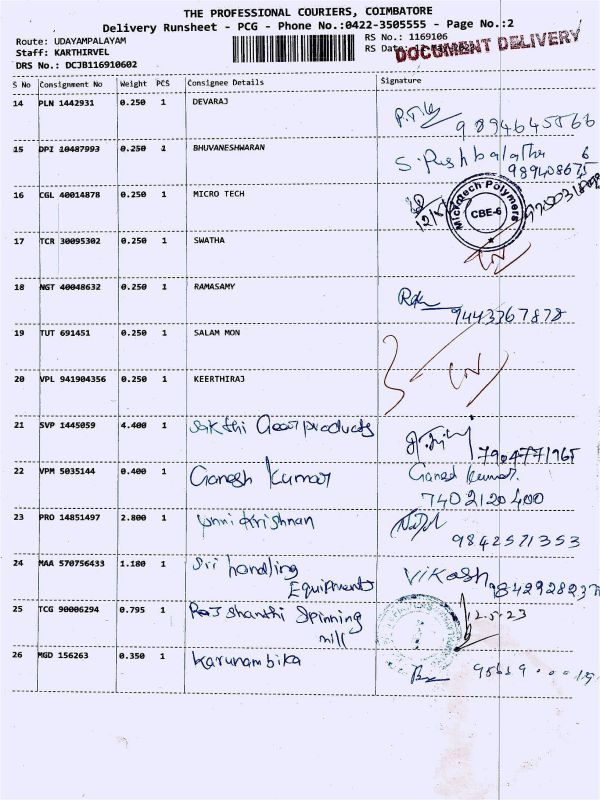 THE PROFESSIONAL COURIERS, COIMBATORE
Delivery Runsheet - PCG - Phone No.:0422-3505555 - Page No.:2
Route: UDAYAMPALAYAM
RS No.: 1169106
Staff: KARTHIRVEL
RS Date:
DOCUMENT DELIVERY
DRS No.: DCJB116910602
S No Consignment No Weight PCS Consignee Details Signature
14 PLN 1442931 0.250 1 DEVARAJ
9894645866
15 DPI 10487993 0.250 1 BHUVANESHWARAN
S. Pushbalatha
16 CGL 40014878 0.250 1 MICRO TECH
Microtech Polymers
CBE-6
17 TCR 30095302 0.250 1 SWATHA
18 NGT 40048632 0.250 1 RAMASAMY
9443367878
19 TUT 691451 0.250 1 SALAM MON
20 VPL 941904356 0.250 1 KEERTHIRAJ
21 SVP 1445059 4.400 1 Sakthi Gear products
7904771965
22 VPM 5035144 0.400 1 Ganesh Kumar Ganesh Kumar.
7402120400
23 PRO 14851497 2.800 1 Unni Krishnan
9842571353
24 MAA 570756433 1.180 1 Sri handling Vikash
Equipments
25 TCG 90006294 0.795 1 Raj shanthi Spinning 12.5.23
mill
26 MGD 156263 0.350 1 Karunambika